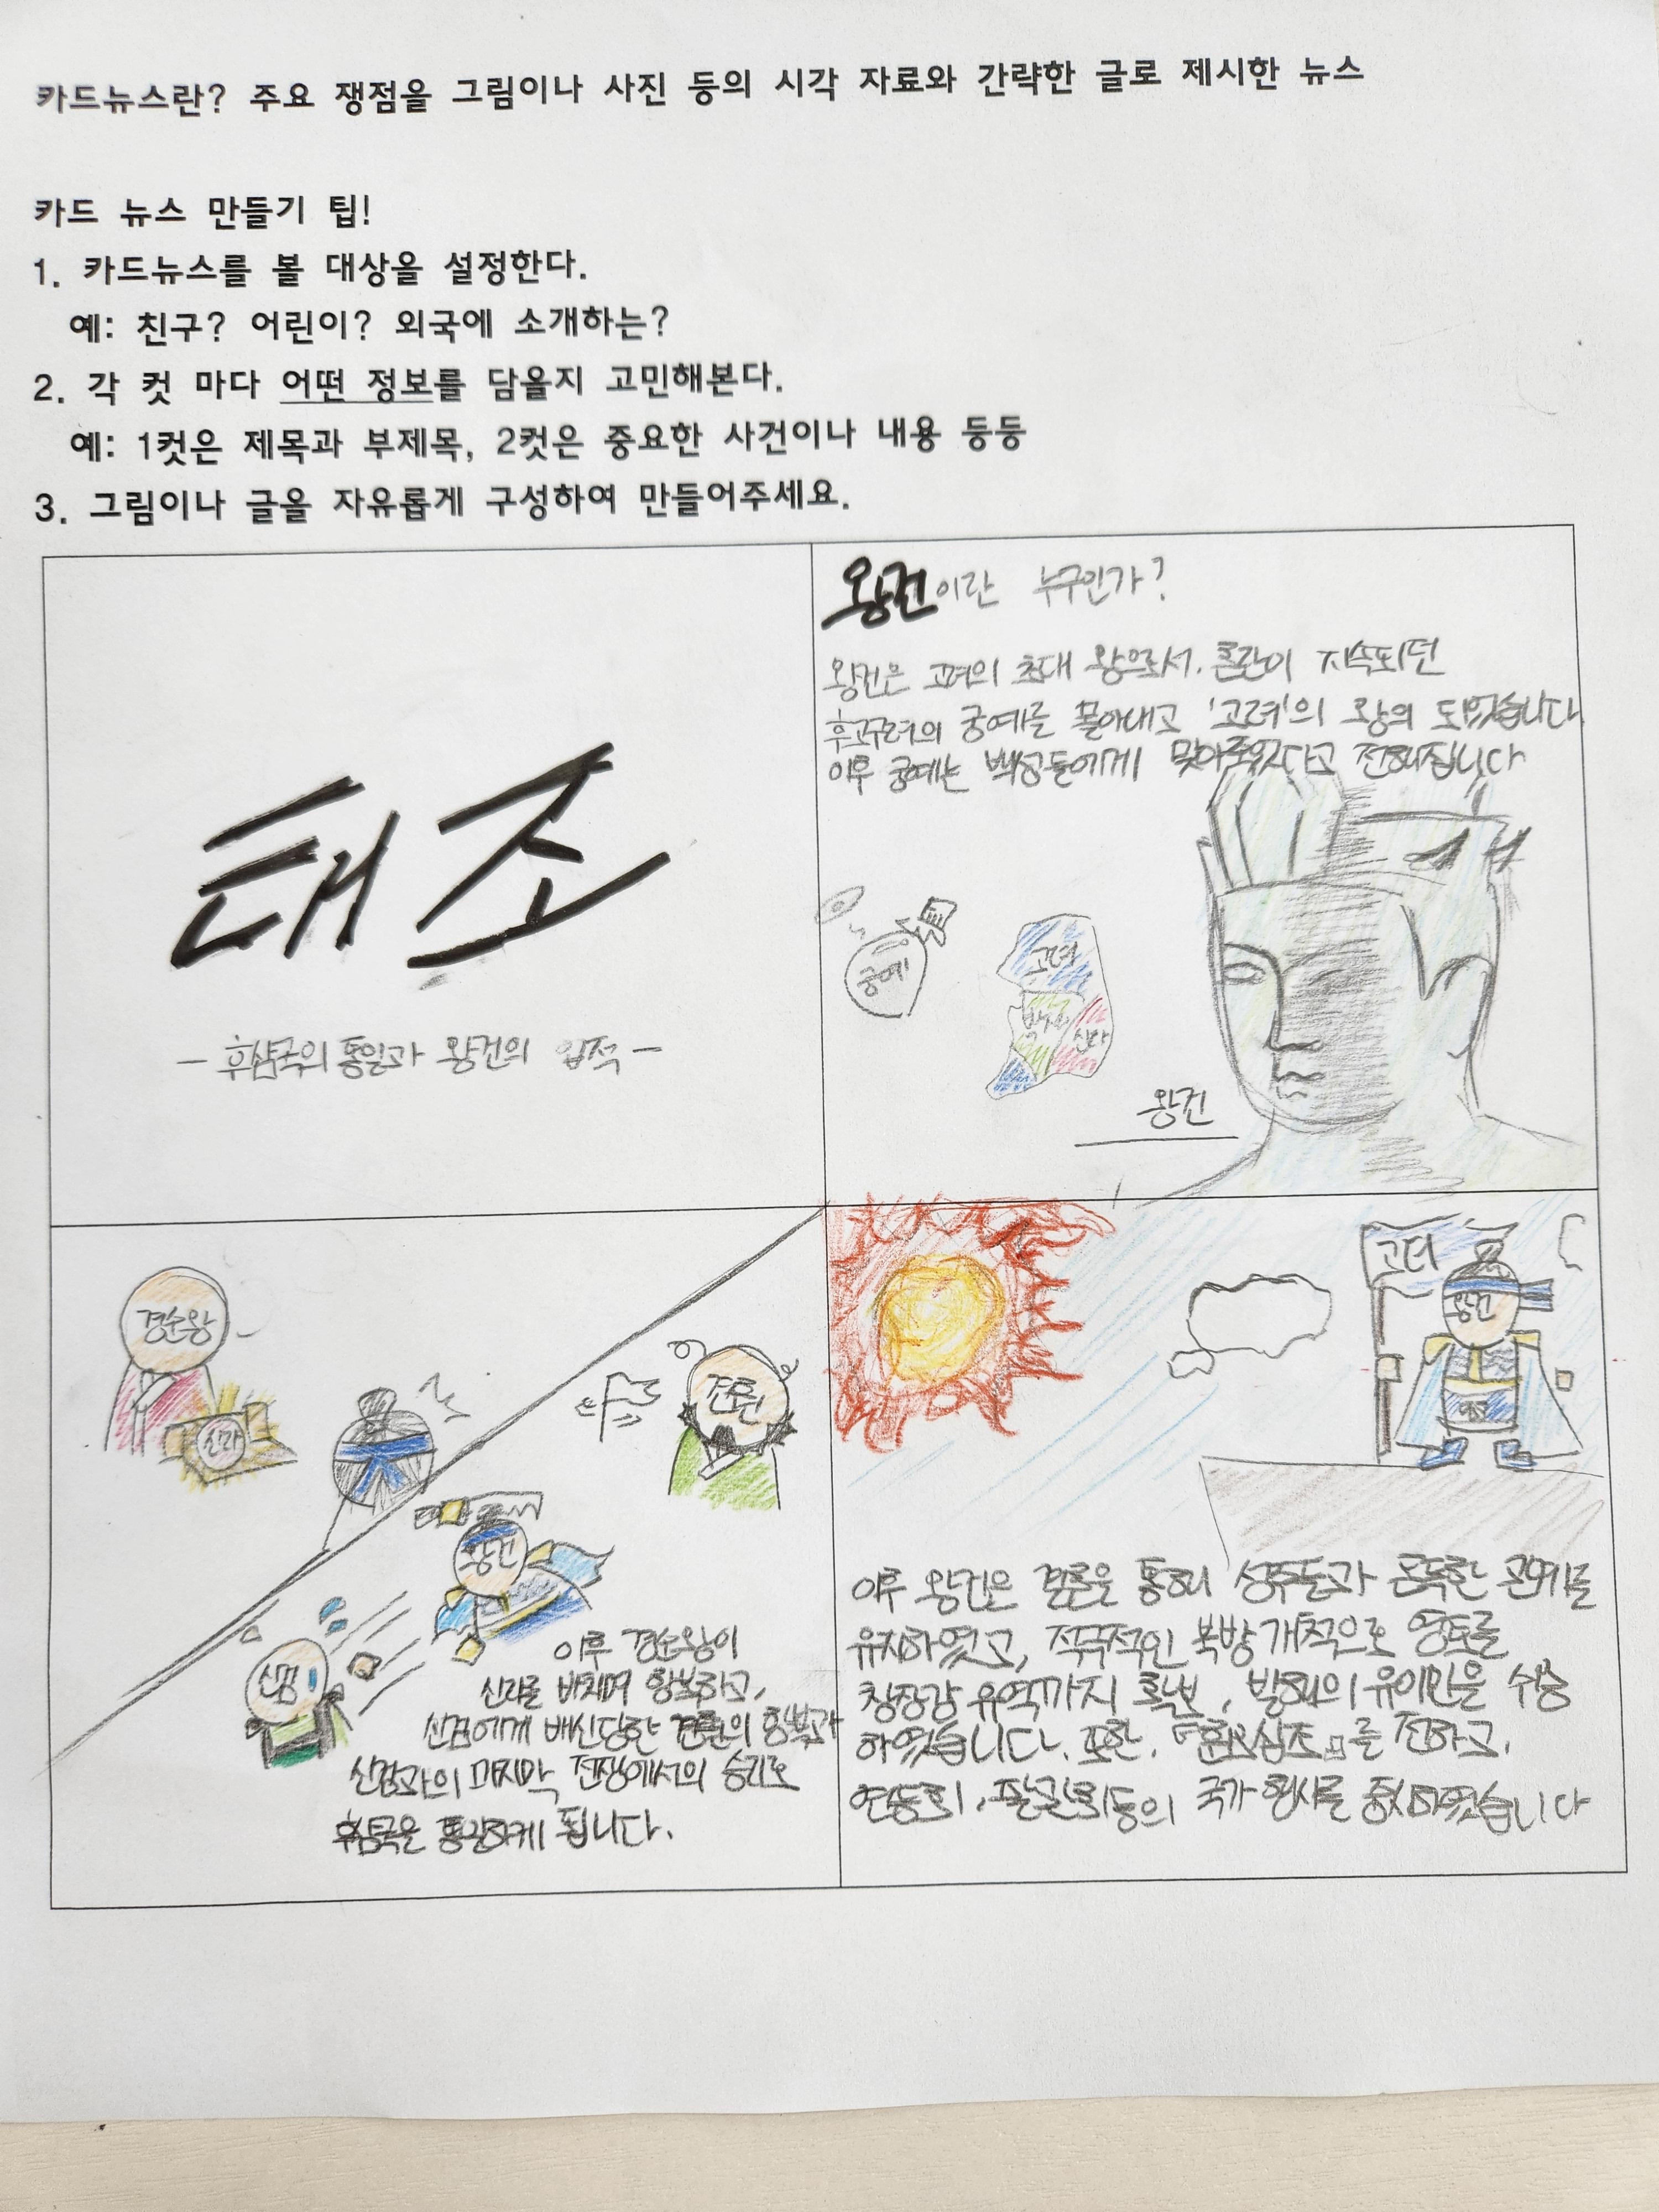 카드뉴스란? 주요 쟁점을 그림이나 사진 등의 시각 자료와 간략한 글로 제시한 뉴스
카드 뉴스 만들기 팁!
1. 카드뉴스를 볼 대상을 설정한다.
예: 친구? 어린이? 외국에 소개하는?
2. 각 컷 마다 어떤 정보를 담을지 고민해본다.
예: 1컷은 제목과 부제목, 2컷은 중요한 사건이나 내용 등등
3. 그림이나 글을 자유롭게 구성하여 만들어주세요.
태조
- 후삼국의 통일과 왕건의 업적 -
왕건이란 누구인가?
왕건은 고려의 초대 왕으로서. 혼란이 지속되던
후고구려의 궁예를 몰아내고 '고려'의 왕의 되었습니다
이후 궁예는 백성들에게 맞아죽었다고 전해집니다
궁예
고려
백제
신라
왕건
경순왕
신라
견훤
왕건
신검
이후 경순왕이
신라를 바치며 항복하고,
신검에게 배신당한 견훤의 항복과
신검과의 마지막 전쟁에서의 승리로
후삼국은 통일하게 됩니다.
고려
왕건
이후 왕건은 결혼을 통해 성주들과 돈독한 관계를
유지하였고, 적극적인 북방개척으로 영토를
청청강 유역까지 확보, 발해의 유이민을 수용
하였습니다. 또한, 『훈요십조』를 전하고,
연등회, 팔관회등의 국가 행사를 중시하였습니다